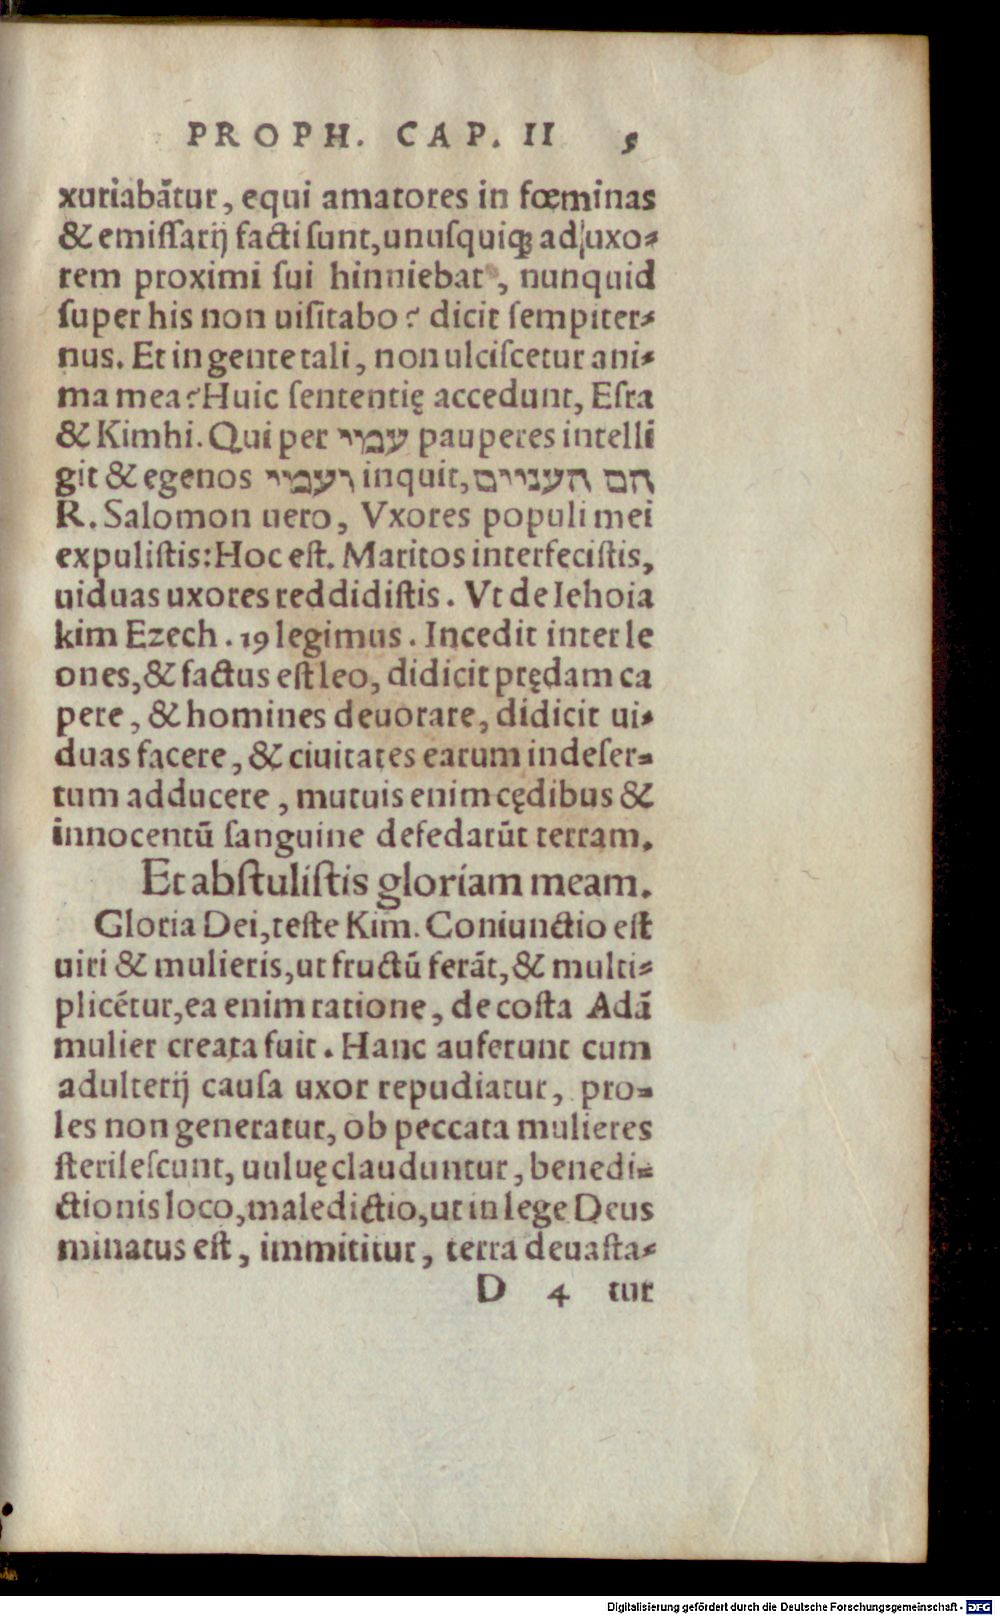 PROPH. CAP. II 5
xuriabãtur, equi amatores in fœminas
& emiſſarij facti ſunt, unuſquiqꝫ ad uxo-
rem proximi ſui hinniebat, nunquid
ſuper his non uiſitabo? dicit ſempiter-
nus. Et in gente tali, non ulciſcetur ani-
ma mea? Huic ſententię accedunt, Eſra
& Kimhi. Qui per עמיי pauperes intelli
git & egenos ועמיי inquit, הם העניים
R. Salomon uero, Vxores populi mei
expuliſtis: Hoc eſt. Maritos interfeciſtis,
uiduas uxores reddidiſtis. Vt de Iehoia
kim Ezech. 19 legimus. Incedit inter le
ones, & factus eſt leo, didicit prędam ca
pere, & homines deuorare, didicit ui-
duas facere, & ciuitates earum in deſer-
tum adducere, mutuis enim cędibus &
innocentũ ſanguine defedarũt terram.
Et abſtuliſtis gloriam meam.
Gloria Dei, teſte Kim. Coniunctio eſt
uiri & mulieris, ut fructũ ferãt, & multi-
plicẽtur, ea enim ratione, de coſta Adã
mulier creata fuit. Hanc auferunt cum
adulterij cauſa uxor repudiatur, pro-
les non generatur, ob peccata mulieres
ſterileſcunt, uuluę clauduntur, benedi-
ctionis loco, maledictio, ut in lege Deus
minatus eſt, immititur, terra deuaſta-
D 4 tur
Digitalisierung gefördert durch die Deutsche Forschungsgemeinschaft - DFG